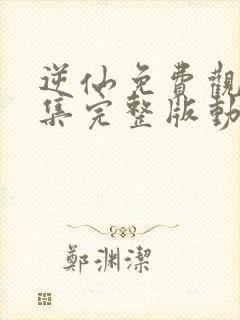 逆仙免費觀
集完整版動
鄭淵潔